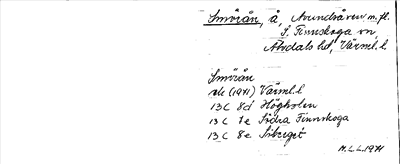 Smörån, å, Arundsåren m. fl.
S. Finnskoga sn,
Älvdals hd, Värml. l
Smörån
rk (1971) Värml. l
13 C 8d Högholen
13 C 7e Södra Finnskoga
13 C 8e
M. L. L. 1971